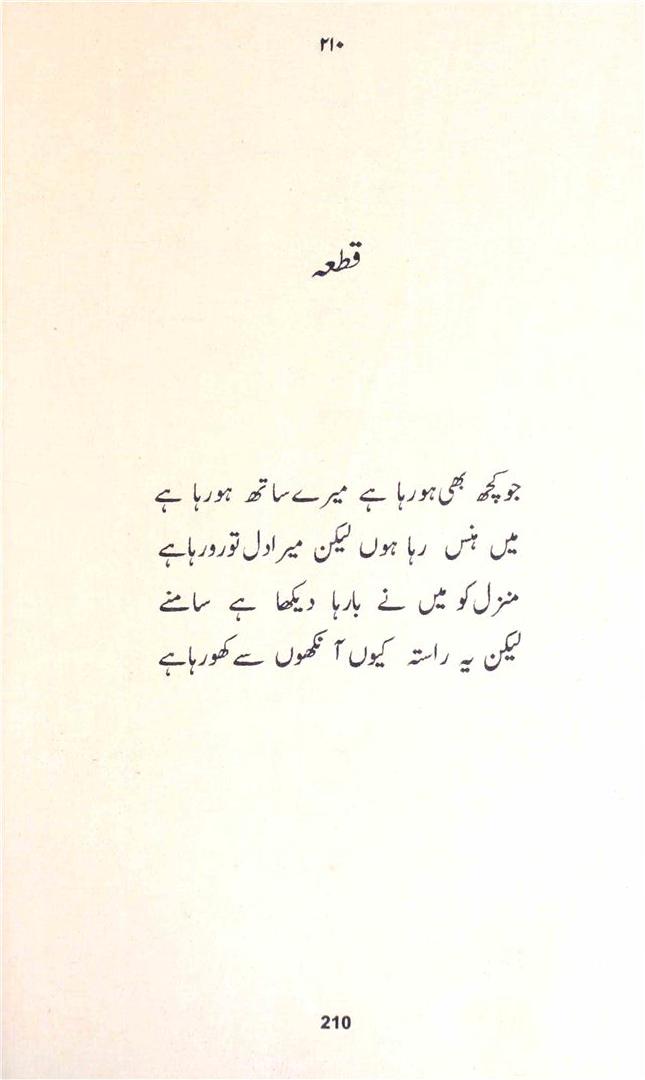 ۲۱۰
قطعہ
جو کچھ بھی ہو رہا ہے میرے ساتھ ہو رہا ہے
میں ہنس رہا ہوں لیکن میرا دل تو رو رہا ہے
منزل کو میں نے بارہا دیکھا ہے سامنے
لیکن یہ راستہ کیوں آنکھوں سے کھو رہا ہے
210